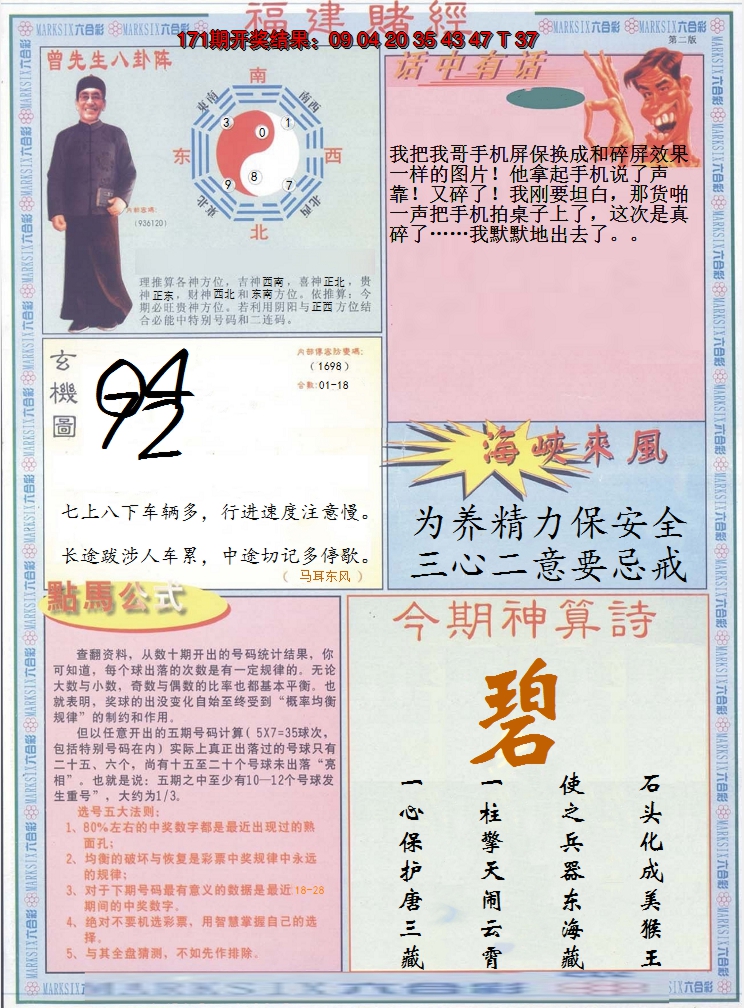 福建賭經
171期开奖结果：09 04 20 35 43 47 T 37
MARKSIX六合彩
第二版
曾先生八卦阵
南
东南
南西
3
1
0
东
西
9
8
7
東北
北西
北
内部密碼:
(936120)
理推算各神方位，吉神西南，喜神正北，贵
神正东，财神西北和东南方位。依推算：今
期必旺贵神方位。若利用阴阳与正西方位结
合必能中特别号码和二连码。
话中有话
我把我哥手机屏保换成和碎屏效果
一样的图片！他拿起手机说了声
靠！又碎了！我刚要坦白，那货啪
一声把手机拍桌子上了，这次是真
碎了……我默默地出去了。。
玄機圖
94
72
内部傳密防變碼:
(1698)
合數:01-18
七上八下车辆多，行进速度注意慢。
长途跋涉人车累，中途切记多停歇。
（ 马耳东风 ）
海峽來風
为养精力保安全
三心二意要忌戒
點馬公式
查翻资料，从数十期开出的号码统计结果，你
可知道，每个球出落的次数是有一定规律的。无论
大数与小数，奇数与偶数的比率也都基本平衡。也
就表明，奖球的出没变化自始至终受到“概率均衡
规律”的制约和作用。
但以任意开出的五期号码计算( 5X7=35球次，
包括特别号码在内) 实际上真正出落过的号球只有
二十五、六个，尚有十五至二十个号球未出落“亮
相”。也就是说：五期之中至少有10—12个号球发
生重号”，大约为1/3。
选号五大法则：
1、80%左右的中奖数字都是最近出现过的熟
面孔；
2、均衡的破坏与恢复是彩票中奖规律中永远
的规律；
3、对于下期号码最有意义的数据是最近18-28
期间的中奖数字。
4、绝对不要机选彩票，用智慧掌握自己的选
择。
5、与其全盘猜测，不如先作排除。
今期神算詩
碧
石头化成美猴王
使之兵器东海藏
一柱擎天闹云霄
一心保护唐三藏